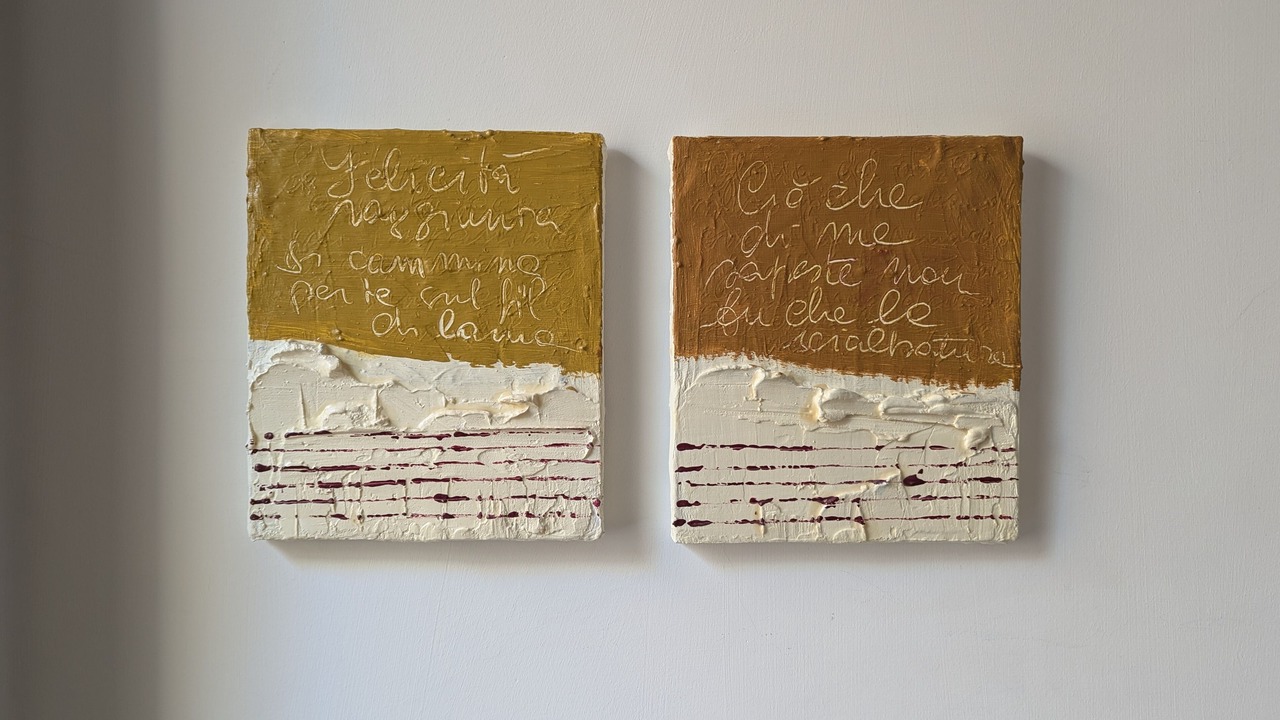 Felicità
raggiunta
si cammina
per te sul fil
di lama
Ciò che
di me
sapeste non
fu che la
scialbatura